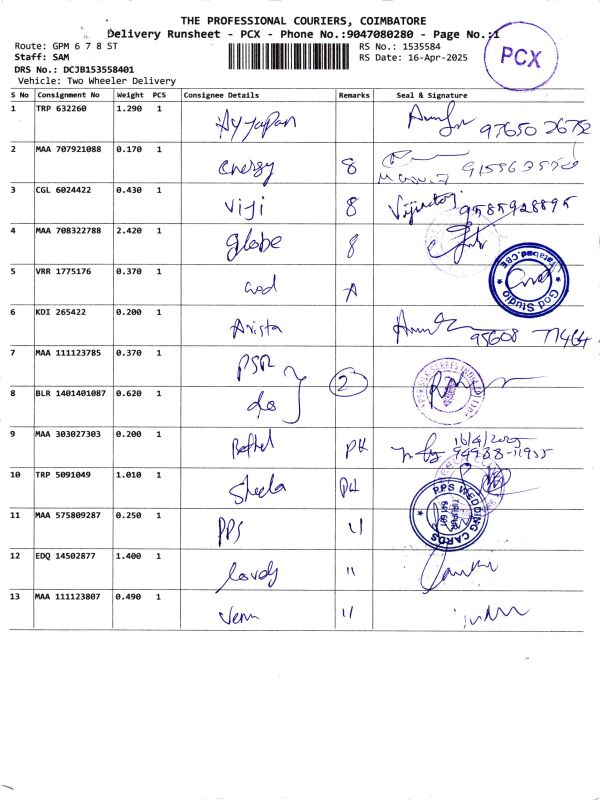 THE PROFESSIONAL COURIERS, COIMBATORE
Delivery Runsheet - PCX - Phone No.:9047080280 - Page No.:1
Route: GPM 6 7 8 ST
RS No.: 1535584
Staff: SAM
RS Date: 16-Apr-2025
DRS No.: DCJB153558401
Vehicle: Two Wheeler Delivery
PCX
S No Consignment No Weight PCS Consignee Details Remarks Seal & Signature
1 TRP 632260 1.290 1
2 MAA 707921088 0.170 1 energy 8
3 CGL 6024422 0.430 1 Viji 8 9585928895
4 MAA 708322788 2.420 1 globe 8
5 VRR 1775176 0.370 1 God A God Studio
6 KDI 265422 0.200 1 Arista 95608 77464
7 MAA 111123785 0.370 1 PSR 2
8 BLR 1401401087 0.620 1 do
9 MAA 303027303 0.200 1 Bethel PK 16/4/2025
10 TRP 5091049 1.010 1 Sheela PK
11 MAA 575809287 0.250 1 PPS 11 PPS WEDDING CARDS TIRUPUR 641 601
12 EDQ 14502877 1.400 1 lovely 11
13 MAA 111123807 0.490 1 Venu 11